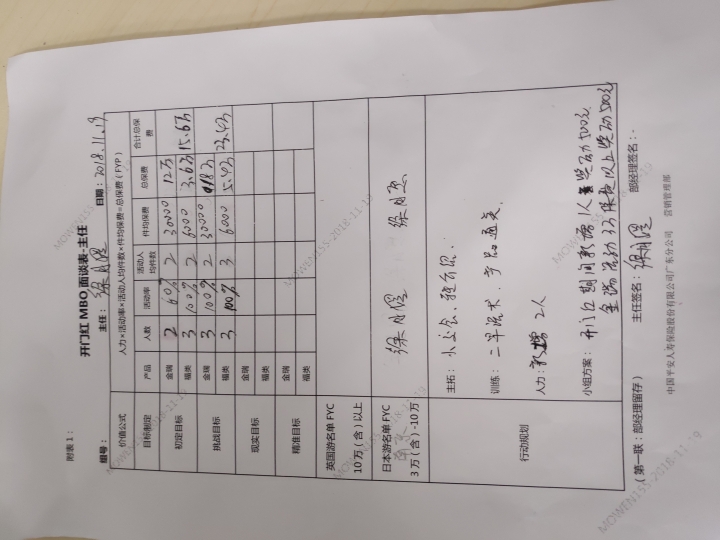 附表1：
开门红 MBO 面谈表-主任
组号： 主任： 日期：2018.11.19
价值公式 人力×活动率×活动人均件数×件均保费=总保费（FYP）
目标制定 产品 人数 活动率 活动人均件数 件均保费 总保费 合计总保费
初定目标 金瑞 2 60% 2 30000 12万 15.6万
福类 3 100% 2 6000 3.6万
挑战目标 金瑞 3 100% 2 30000 18万 23.4万
福类 3 100% 3 6000 5.4万
现实目标 金瑞
福类
精准目标 金瑞
福类
英国游名单 FYC
10万（含）以上
日本游名单 FYC
3万（含）-10万
行动规划
主拓：
训练：二早流术，产品通关
人力： 2人
小组方案：开门红期间 1人 奖励500元
金瑞活动3万保费以上奖励500元
（第一联：部经理留存） 主任签名： 部经理签名：
中国平安人寿保险股份有限公司广东分公司 营销管理部
MOWEN155-2018-11-19